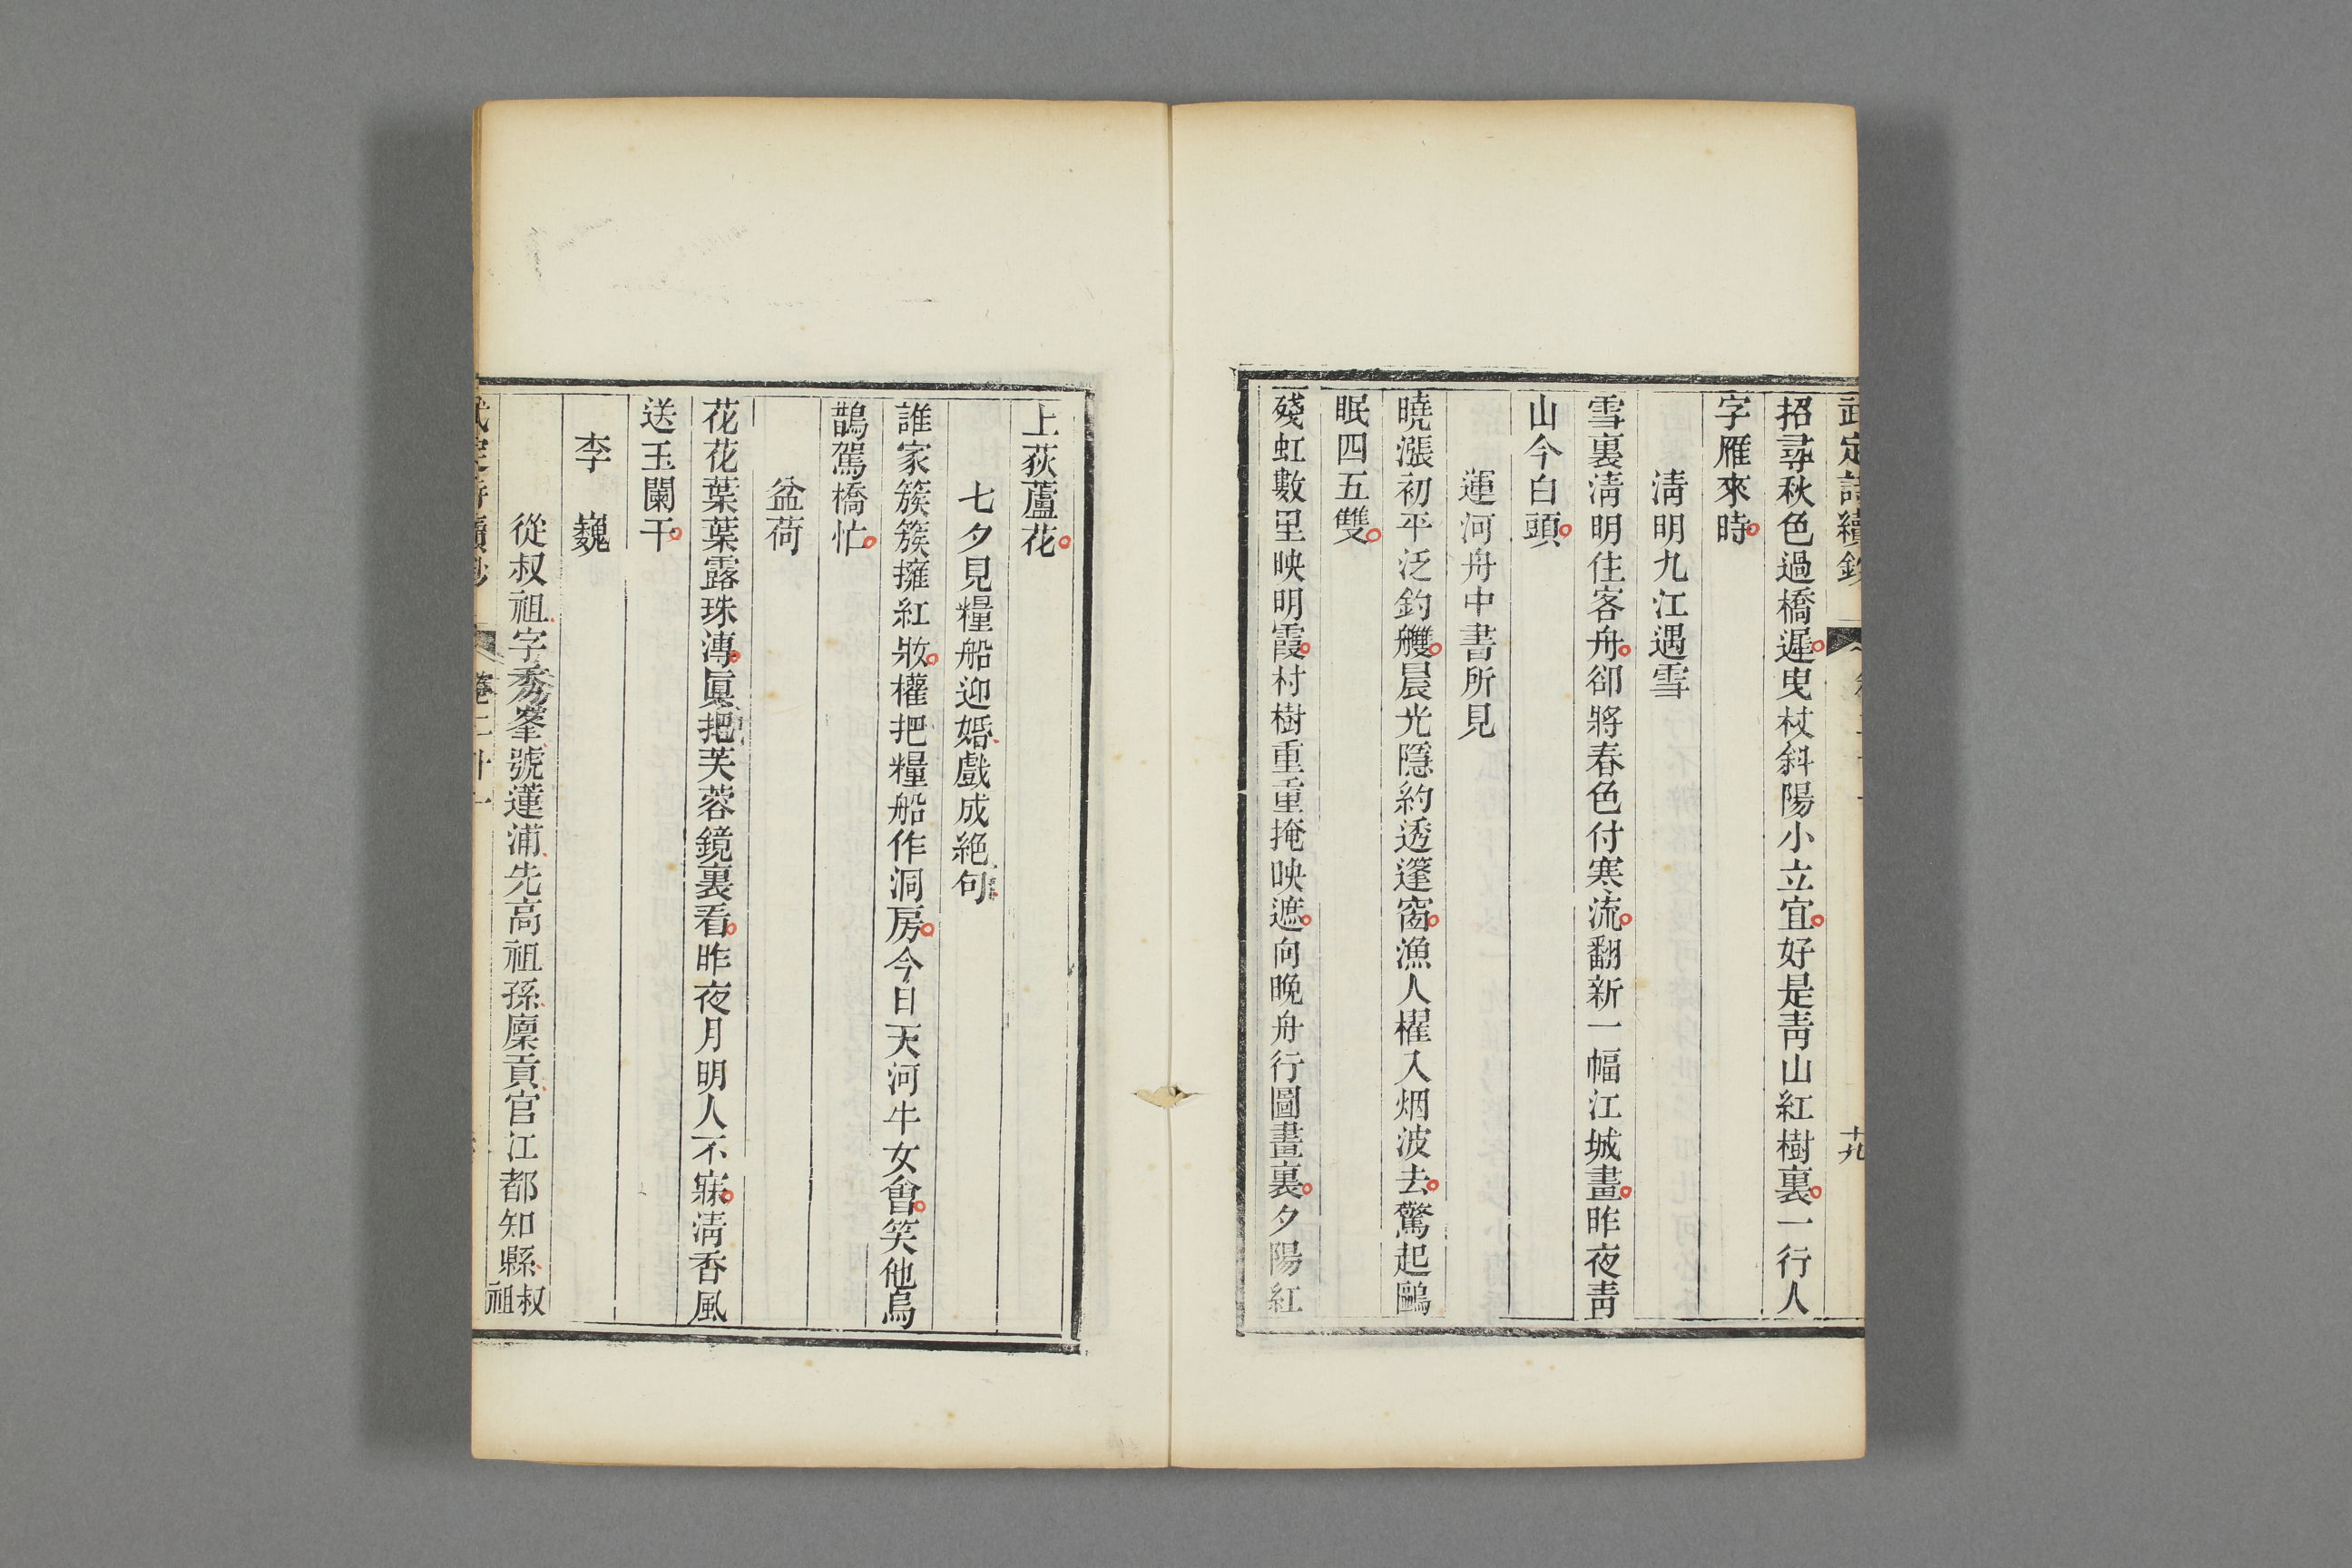 武定詩續鈔
十九
招尋秋色過橋遲曳杖斜陽小立宜好是靑山紅樹裏一行人
字雁來時
淸明九江遇雪
雪裏淸明住客舟卻將春色付寒流翻新一幅江城畫昨夜靑
山今白頭
運河舟中書所見
曉漲初平泛釣艭晨光隱約透篷窗漁人櫂入烟波去驚起鷗
眠四五雙
殘虹數里映明霞村樹重重掩映遮向晚舟行圖畫裏夕陽紅
上荻蘆花
七夕見糧船迎婚戲成絶句
誰家簇簇擁紅妝權把糧船作洞房今日天河牛女會笑他烏
鵲駕橋忙
盆荷
花花葉葉露珠漙眞把芙蓉鏡裏看昨夜月明人不寐淸香風
送玉闌干
李巍
從叔祖字秀峯號蓮浦先高祖孫廩貢官江都知縣叔祖
武定詩續鈔 卷二十一